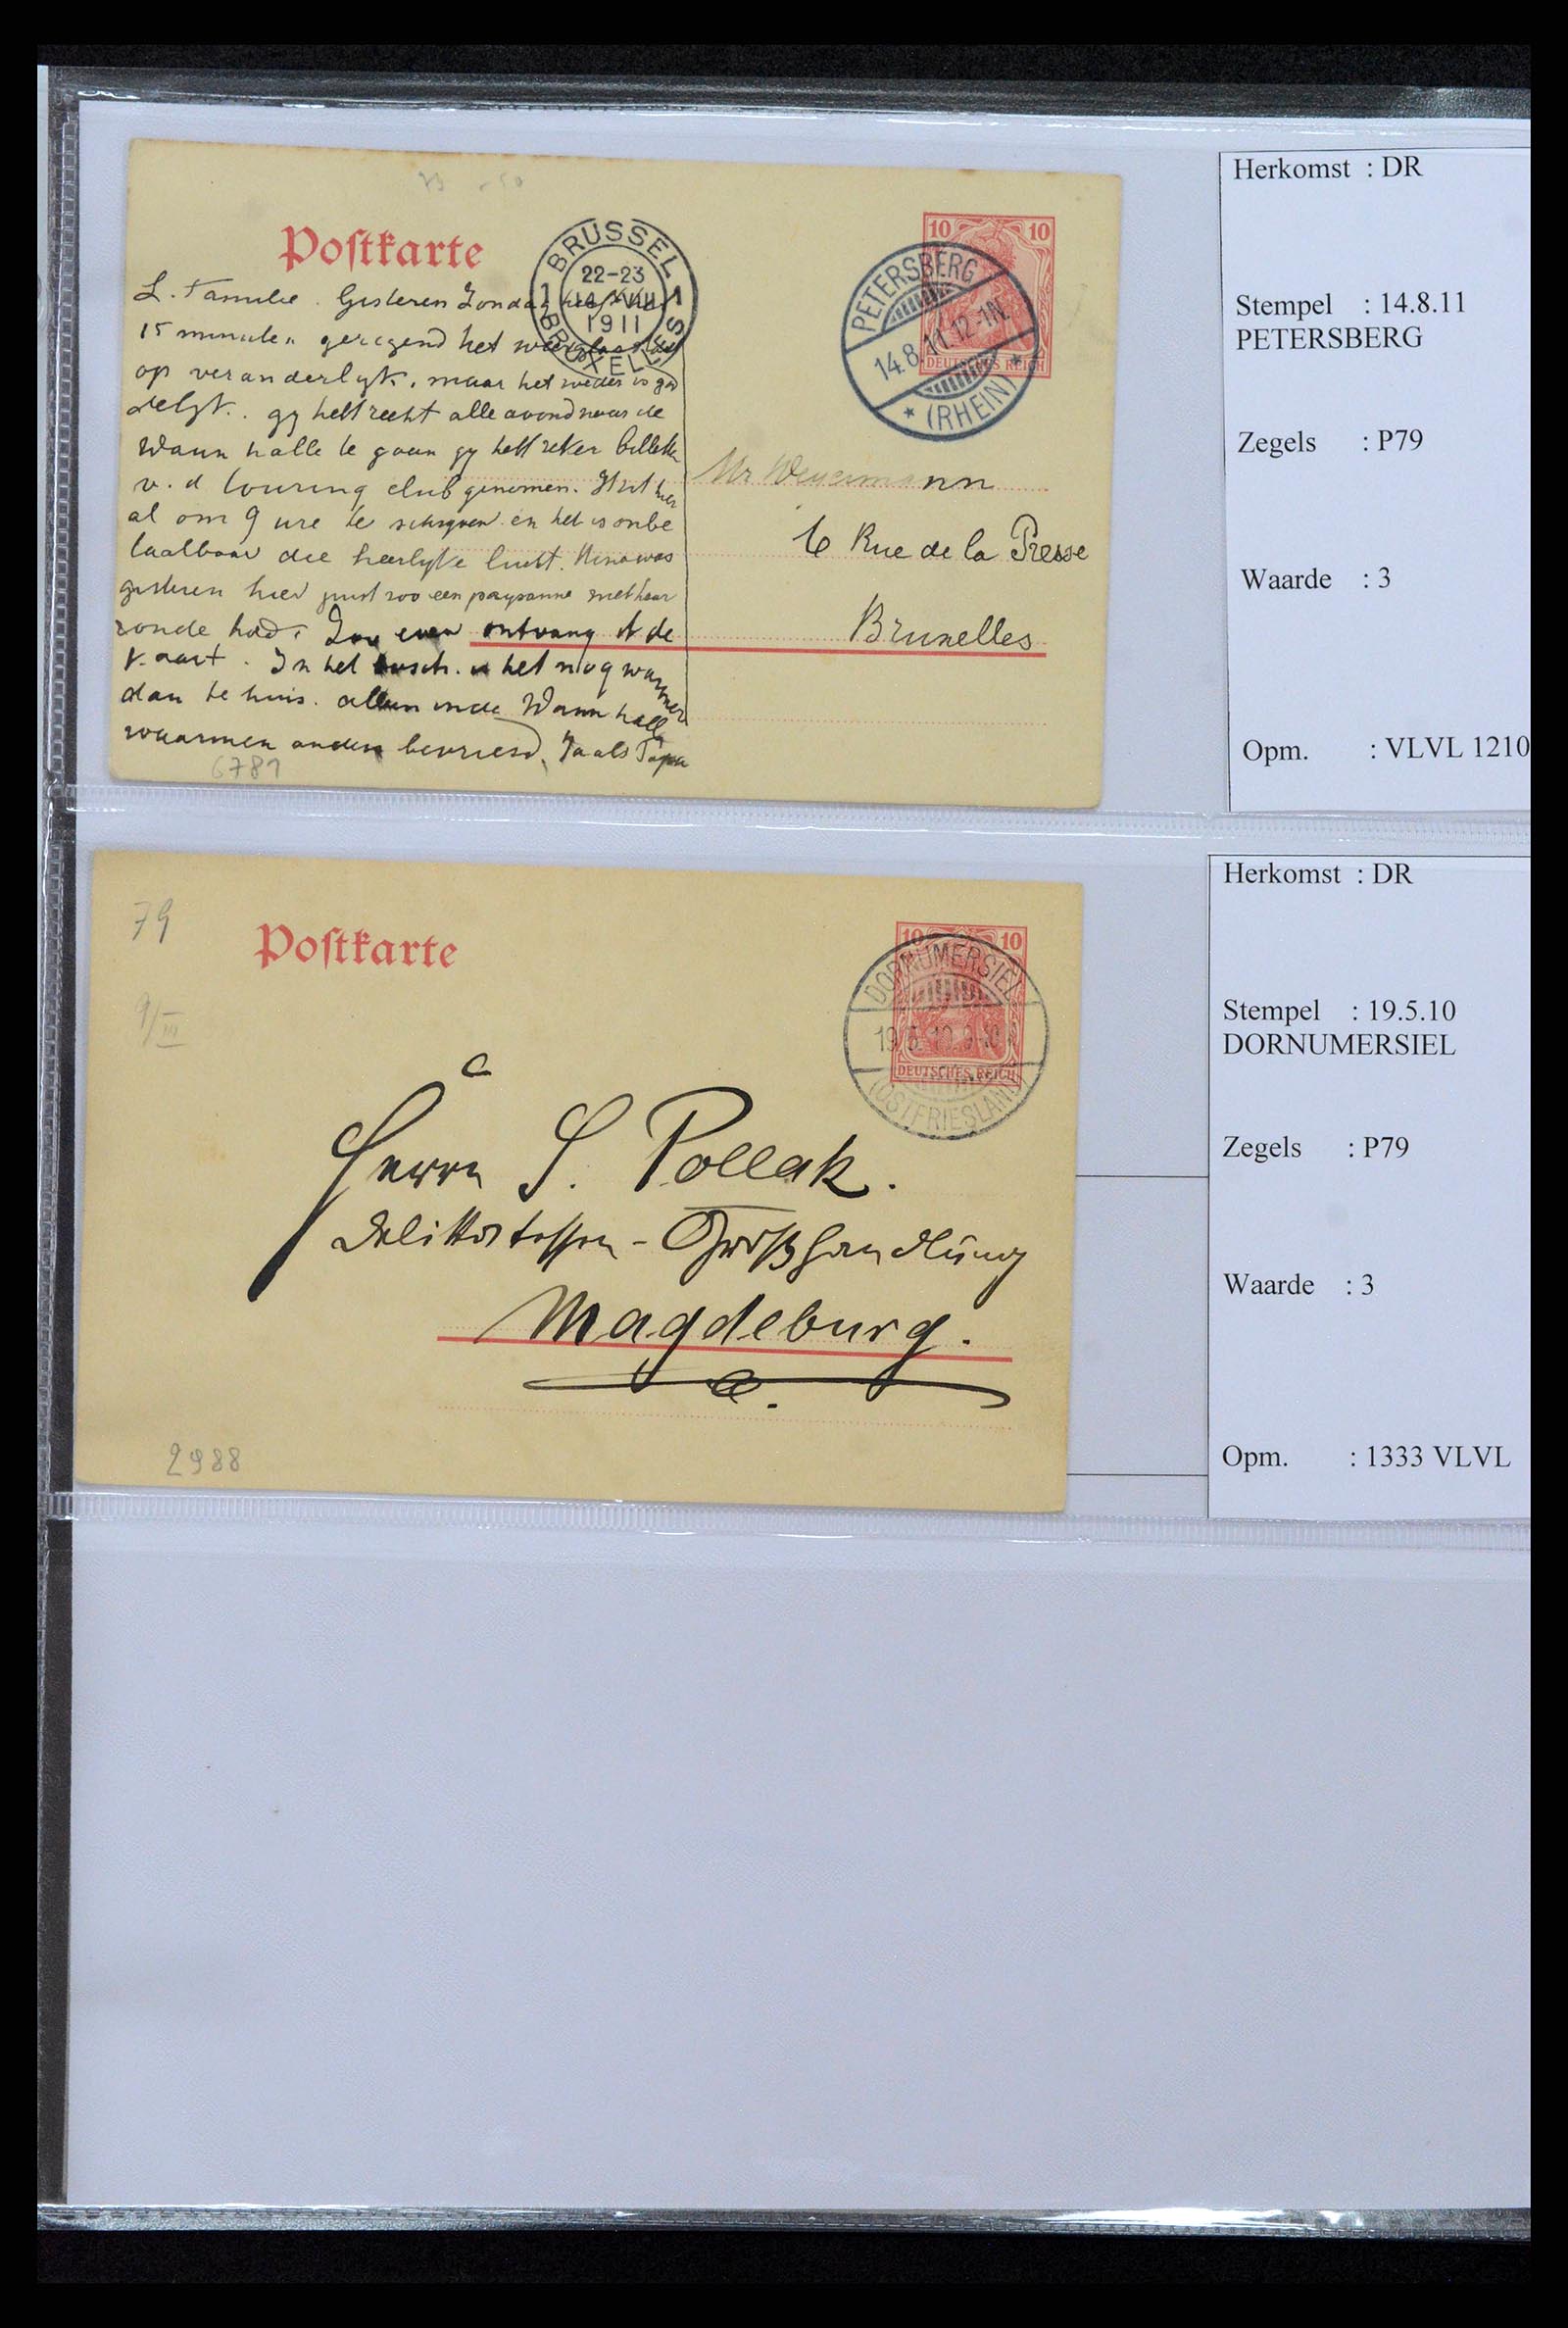 Postkarte
10 10
DEUTSCHES REICH
PETERSBERG
14.8.11.12-1N.
* (RHEIN) *
BRÜSSEL
1 22-23 1
14 VIII
1911
BRUXELLES
L. Familie. Gisteren Zondag
15 minuten geregend het
op veranderlyk. maar het weder is
gy hebt recht alle avond naar de
Wann halle te gaan gy hebt zeker
v. d touring club genomen. hier
al om 9 ure te schryven en het is onbe
taalbaar die heerlyke lucht. Nina was
gisteren hier juist zoo een paysanne met haar
ronde hoed. even ontvang ik de
kaart. In het bosch is het nog warmer
dan te huis. alleen in de Wann halle
waarmen anders bevriesd. Ja als Papa
6781
Mr
6 Rue de la Presse
Bruxelles
Herkomst : DR
Stempel : 14.8.11
PETERSBERG
Zegels : P79
Waarde : 3
Opm. : VLVL 1210
79
9/III
Postkarte
10 10
DEUTSCHES REICH
DORNUMERSIEL
19.5.10
(OSTFRIESLAND)
Herrn S. Pollak.
Delikatessen-Großhandlung
Magdeburg.
2988
Herkomst : DR
Stempel : 19.5.10
DORNUMERSIEL
Zegels : P79
Waarde : 3
Opm. : 1333 VLVL